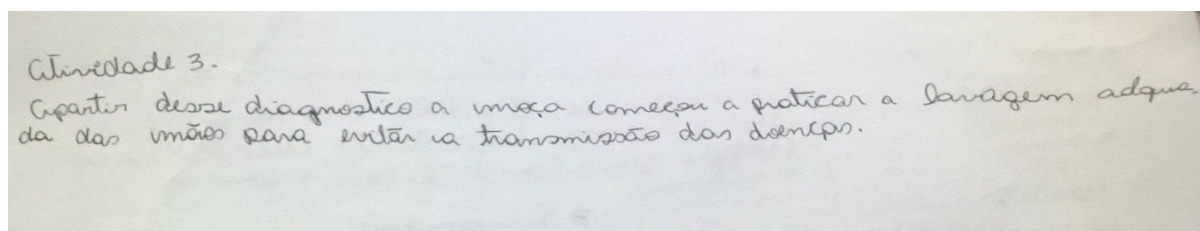 Atividade 3.
Apartir desse diagnostico a moça começou a praticar a lavagem adqua-
da das mãos para evitar a transmissão das doenças.